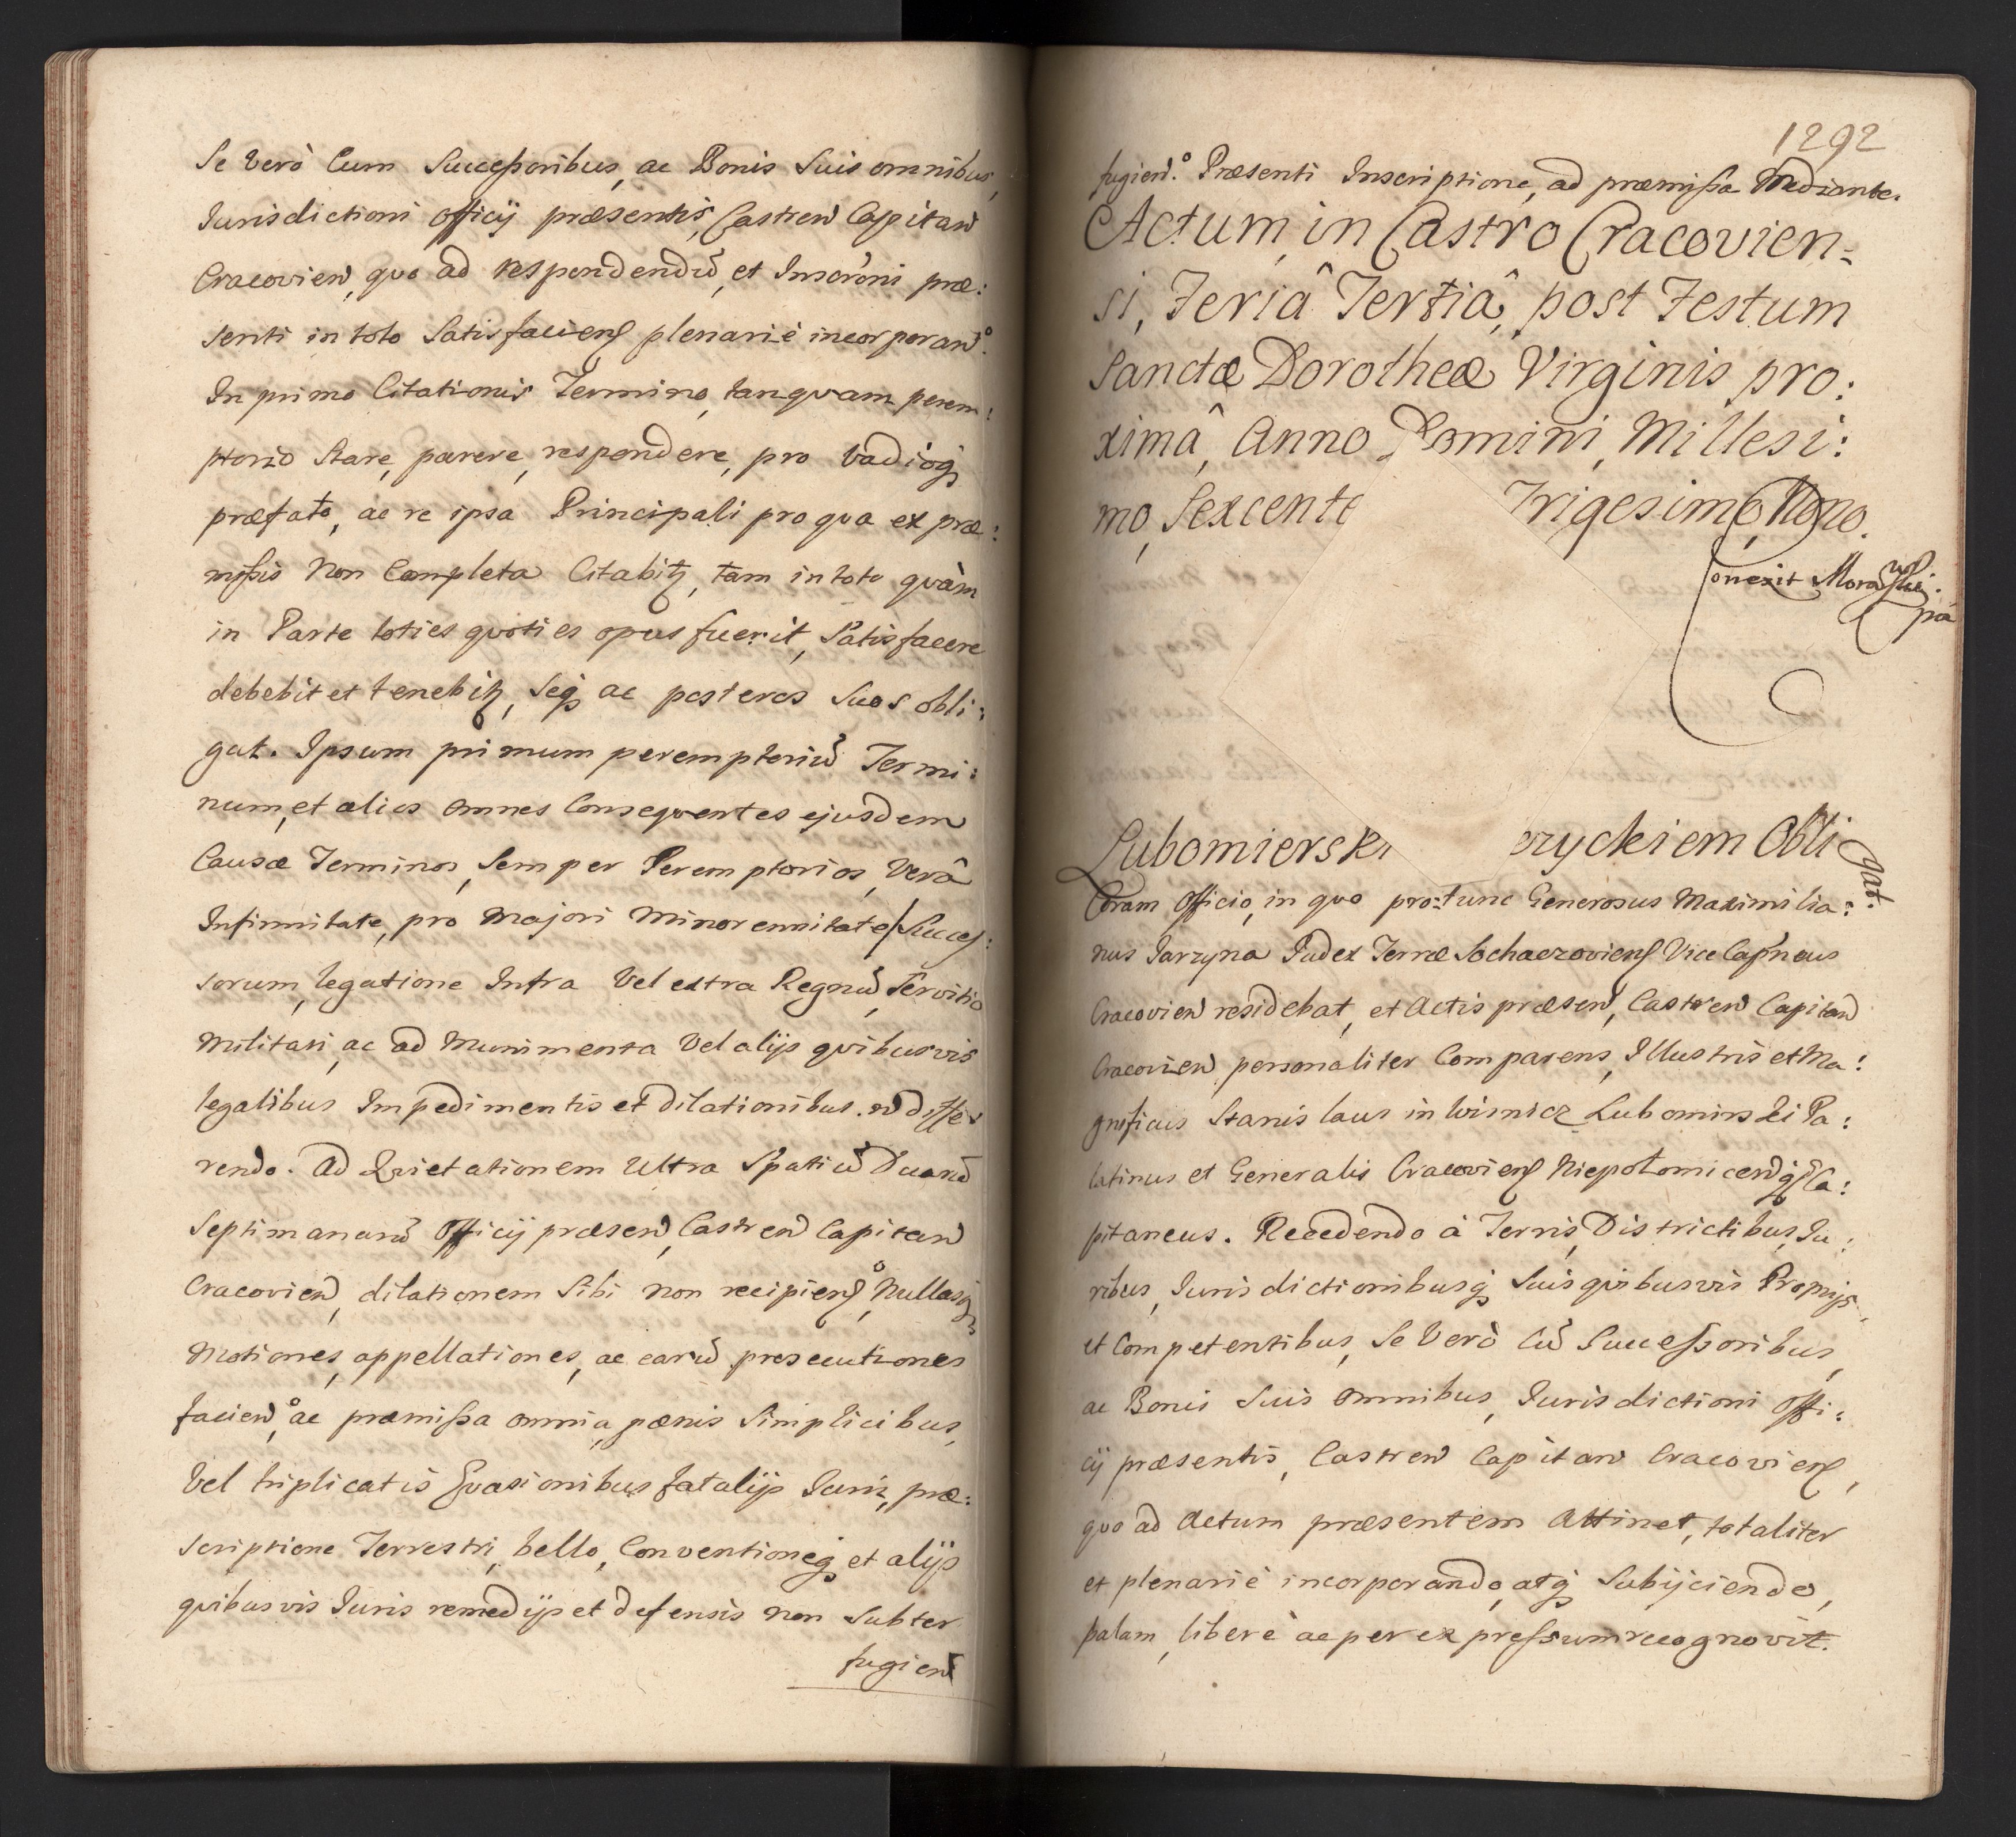 Se verò Cum Successoribus, ac Bonis Suis omnibus,
Iurisdictioni officÿ præsentis, Castren Capitan
Cracovien, quo ad respondendū, et Inscrōni præ:
senti in toto Satisfaciens plenariè incorporan͠o.
In primo Citationis Termino, tanquam perem:
ptorio Stare, parere, respondere, pro vadioq3
præfato, ac re ipsa Principali pro qua ex præ:
missis Non Completa Citabit2, tam in toto quàm
in Parte toties quoties opus fuerit, Satisfacere
debebit et tenebit2, Seq3 ac posteros Suos obli:
gat. Ipsum primum peremptoriū Termi:
num, et alios omnes Consequentes ejusdem
Causæ Terminos, Semper Peremptorios, Verâ
Infirmitate, pro Majori Minorennitate Succes:
sorum, legatione Infra vel extra Regnū, Servitio
Militari, ac ad Munimenta Vel alÿs quibusvis
legalibus Impedimentis et dilationibus. n̄ diffe:
rendo. Ad Quietationem Ultra Spatiū Duarū
Septimanarū Officÿ præsen, Castren Capitan
Cracovien, dilationem Sibi non recipien͠o, Nullasq3
Motiones, appellationes, ac earū prosecutiones
facien͠o, ac præmissa omnia, pœnis Simplicibus,
Vel triplicatis Evasionibus fatalÿs Iuris, præ:
scriptione Terrestri, bello, Conventioneq3 et alÿs
quibusvis Iuris remedÿs et defensis non Subter
fugien
1292
fugien.͠o Præsenti Inscriptione, ad præmissa Mediante.
Actum in Castro Cracovien=
si, Feriâ Tertiâ, post Festum
Sanctæ Dorotheæ Virginis pro:
ximâ, Anno Domini, Millesi:
mo, Sexcente Trigesimo, Nono.
Conexit Morawski.
pa
Lubomierski eryckiem Obligat.
Coram Officio, in quo protunc Generosus Maximilia:
nus Jarzyna Iudex Terræ Sochaczoviens Vice Capneus
Cracovien residebat, et Actis præsen, Castren Capitan
Cracovien personaliter Comparens, Illustris et Ma:
gnificus Stanislaus in Wisnicz Lubomirski Pa:
latinus et Generalis Cracoviens Niepolomicenq3 Ca:
pitaneus. Recedendo à Terris, Districtibus, Iu:
ribus, Iurisdictionibusq3 Suis quibusvis Proprÿs,
et Competentibus, Se Verò Cū Successoribus,
ac Bonis Suis omnibus, Iurisdictioni Offi:
cÿ præsentis, Castren Capitan Cracoviens,
quo ad Actum præsentem Attinet, totaliter
et plenariè incorporando, atq3 Subÿciendo,
palam, liberè ac per expressum recognovit.